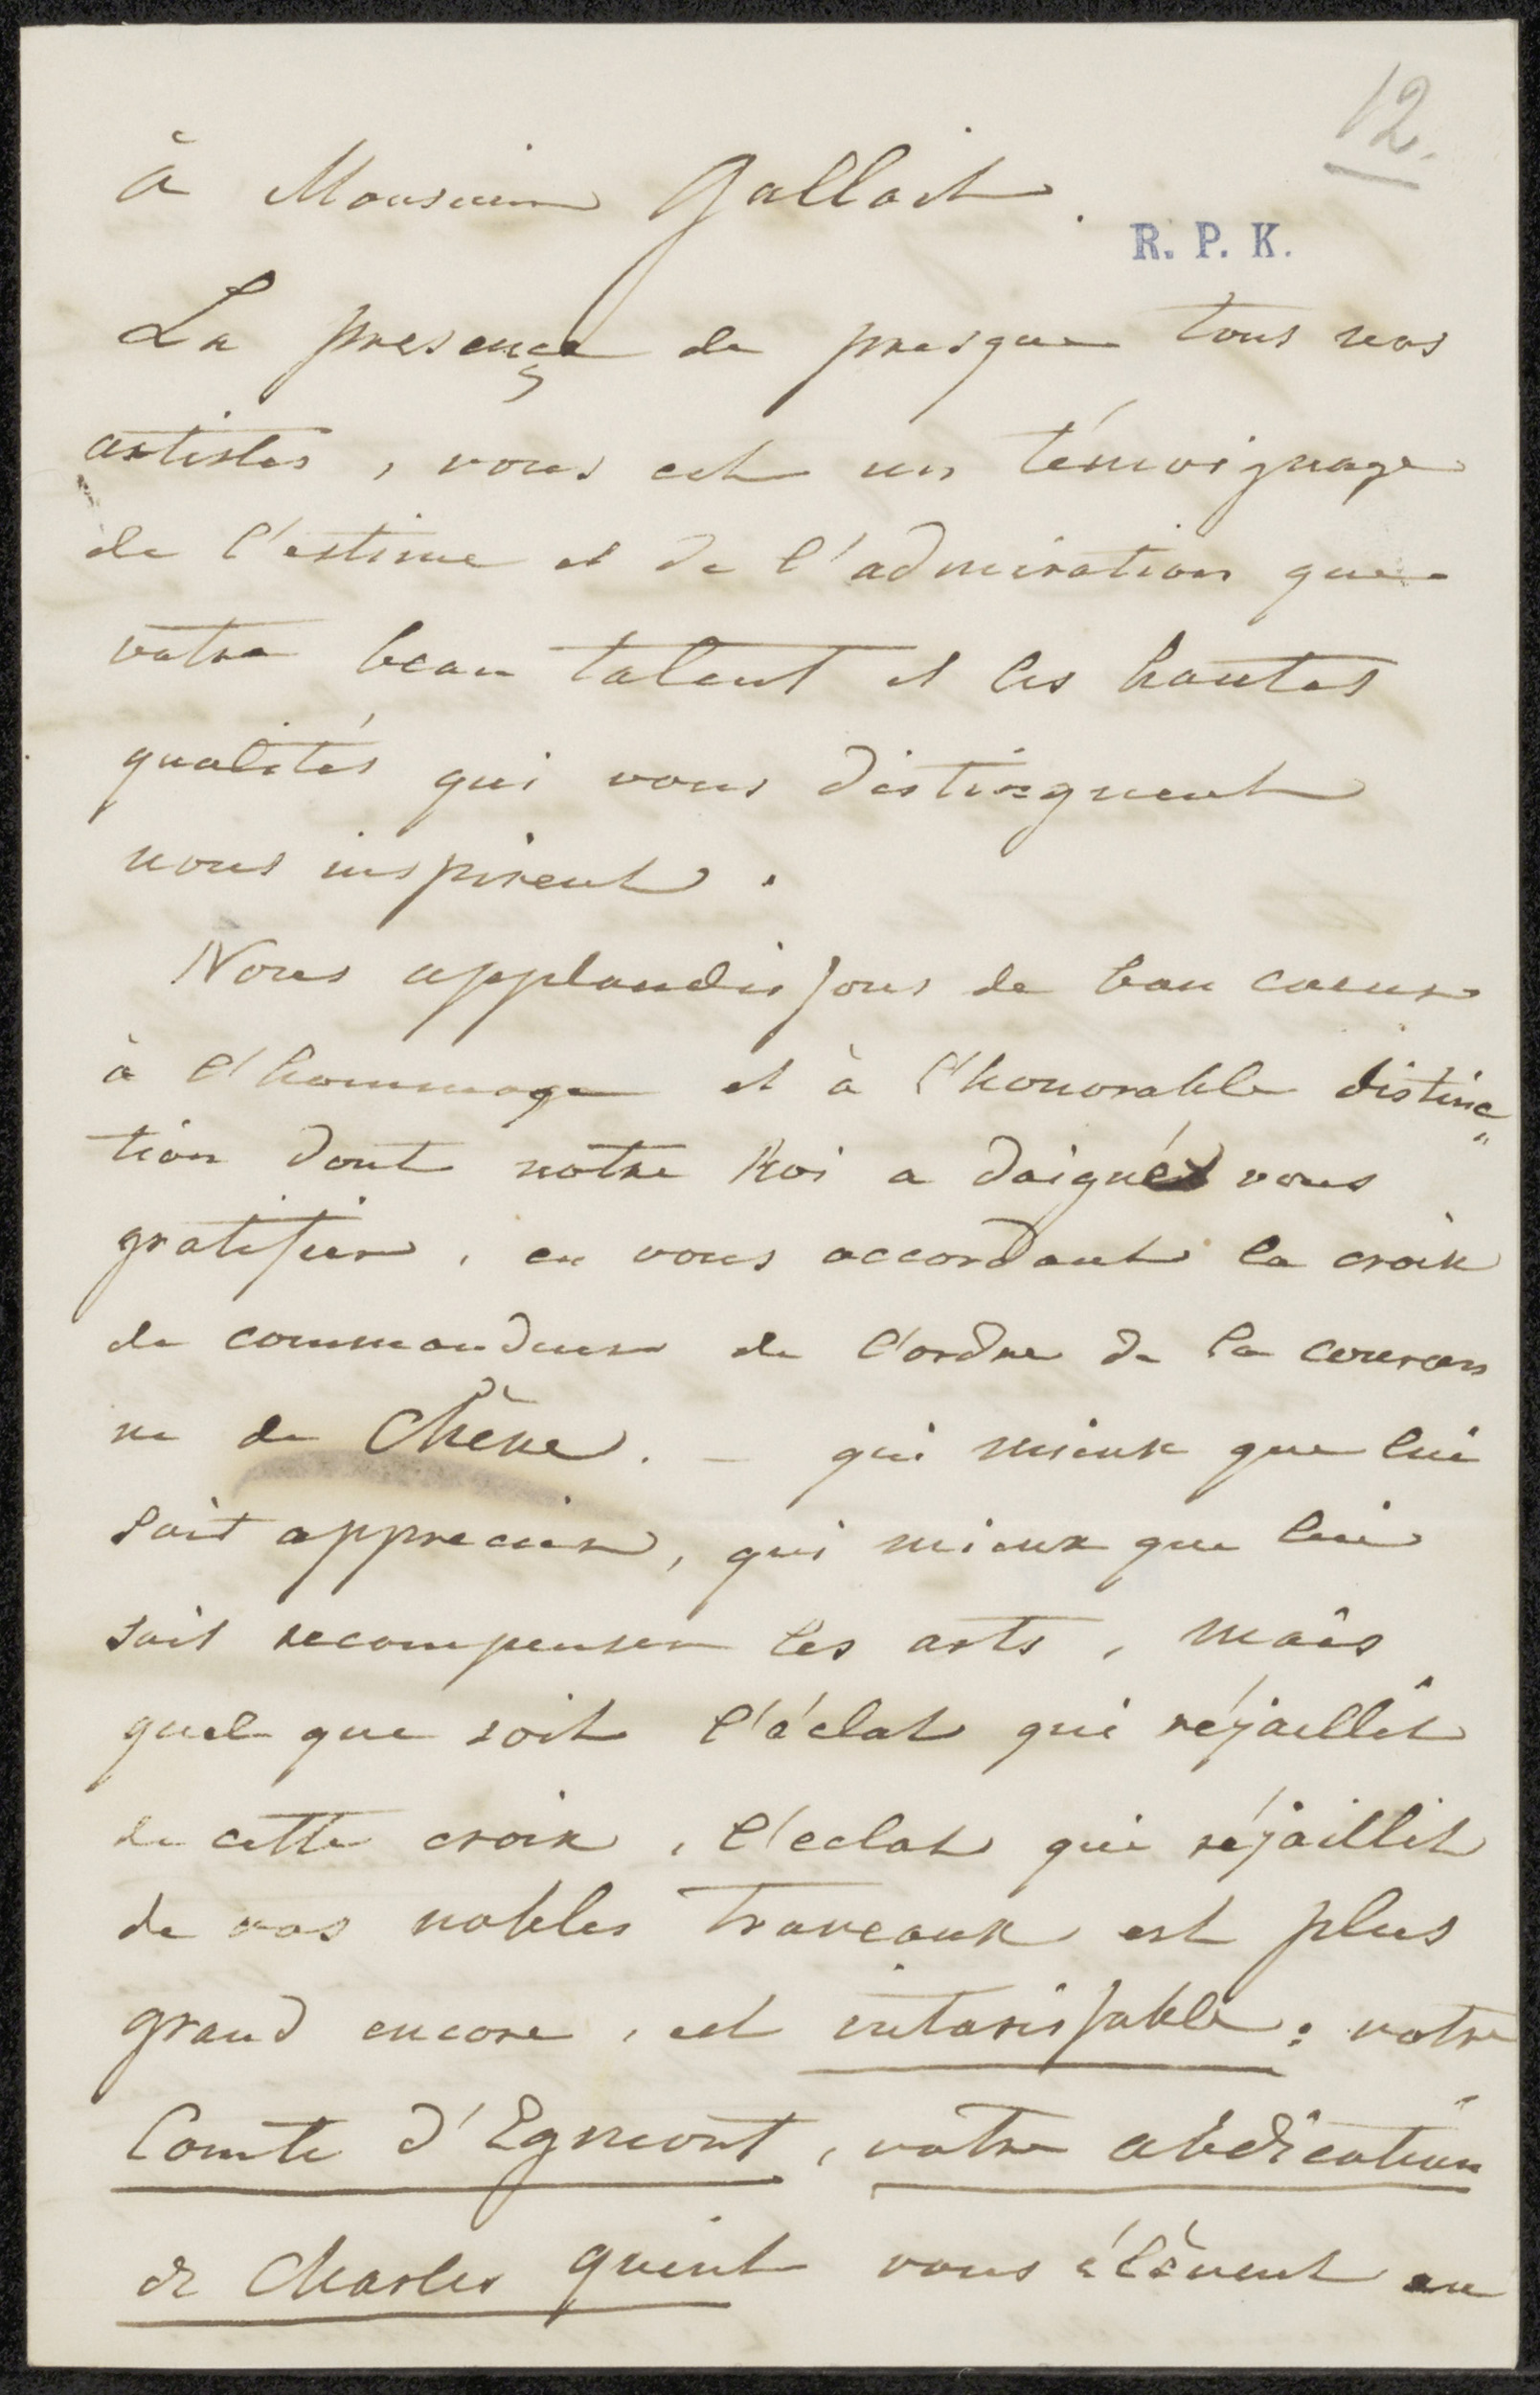 12.
à Monsieur Gallait.
R. P. K.
La presençe de presque tous nos
artistes, vous est un témoignage
de l'estime et de l'admiration que
votre beau talent et les hautes
qualités qui vous distinguent
nous inspirent.
Nous applaudissons de bon coeur
à l'hommage et à l'honorable distinc„
tion dont notre Roi a daigné vous
gratifier, en vous accordant la croix
de commandeur de l'ordre de la couron
ne de Chêne. – qui mieux que lui
sait apprecier, qui mieux que lui
sait recompenser les arts, mais
quel que soit l'éclat qui réjaillit
de cette croix, l'eclat qui réjaillit
de vos nobles traveaux est plus
grand encore, est intarissable: votre
Comte d'Egmont, votre abdication
de Charles quint vous élèvent au